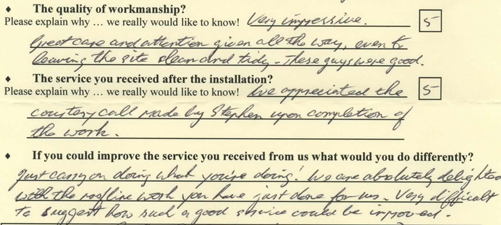 ♦ The quality of workmanship?
Please explain why ... we really would like to know! Very impressive. 5
Great care and attention given all the way, even to
leaving the site clean and tidy - These guys were good.
♦ The service you received after the installation?
Please explain why ... we really would like to know! We appreciated the 5
courtesy call made by Stephen upon completion of
the work.
♦ If you could improve the service you received from us what would you do differently?
Just carry on doing what you're doing! We are absolutely delighted
with the roofline work you have just done for us. Very difficult
to suggest how such a good service could be improved.